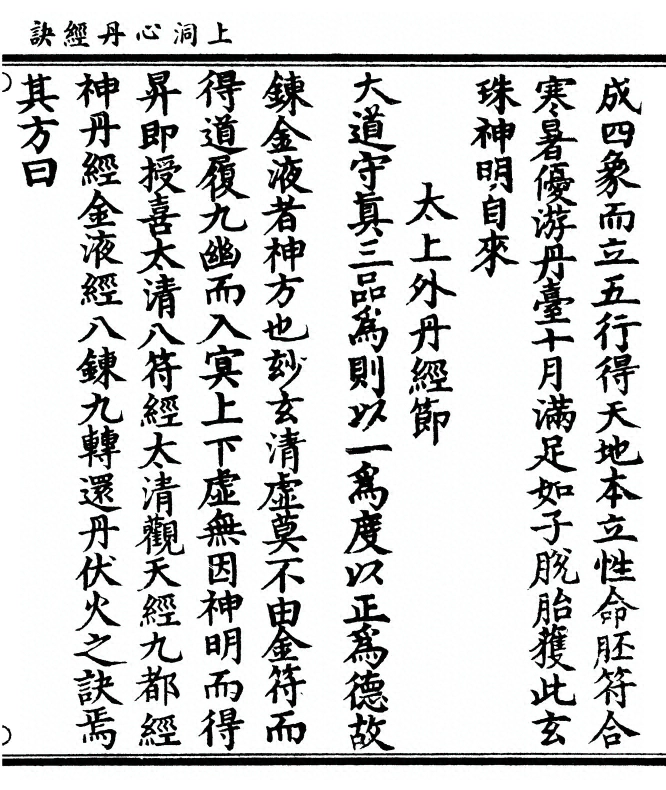 上洞心丹經訣
成四象而立五行得天地本立性命胚符合
寒暑優游丹臺十月滿足如子脫胎獲此玄
珠神明自來
太上外丹經節
大道守真三品為則以一為度以正為德故
鍊金液者神方也玅玄清虛莫不由金符而
得道履九幽而入寞上下虛無因神明而得
昇即授喜太清八符經太清觀天經九都經
神丹經金液經八鍊九轉還丹伏火之訣焉
其方曰